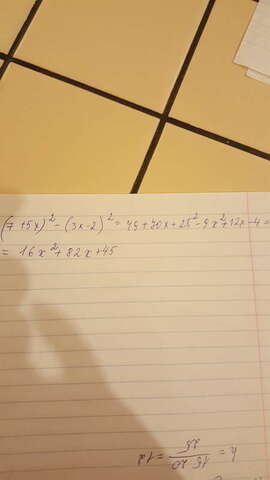 (7+5x)² - (3x-2)² = 49+70x+25² - 9x²+12x-4 =
= 16x²+82x+45
k = 15·20 / 25 = 12